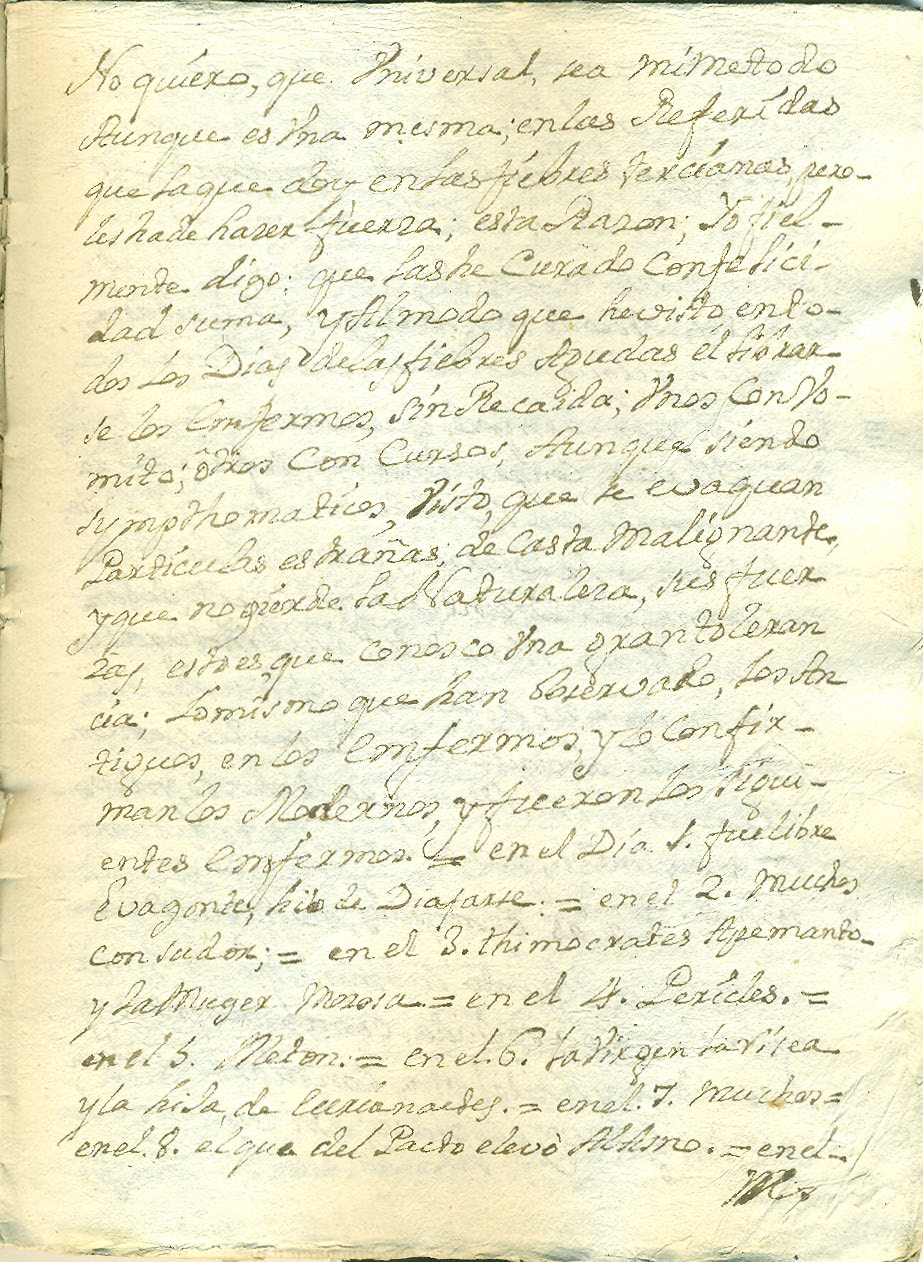 No quiero, que Vniversal, sea mi Metodo
Aunque es Vna mesma; en las Referidas
que la que doy en las fiebres tercianas, pero-
les ha de hazer fuerza; esta Razon; Yo fiel-
mente digo: que las he Curado Con felici-
dad suma, y Al modo que he visto, en to-
dos los Dias de las fiebres Agudas el librar-
se los Enfermos, sin Recaida; Vnos Con Vo-
mito; otros Con Cursos, Aunque siendo
sympthomaticos, Visto, que se evaquan
Particulas estrañas, de Casta Malignante,
y que no pierde la Naturaleza, sus fuer
zas, esto es, que conosco Vna gran toleran
cia; lo mismo que han observado, los An
tiguos, en los Enfermos, y lo Confir-
man los Modernos, y fueron los sigui-
entes Enfermos. = en el Dia 1. fue libre
Evagonte, hijo de Diafarte. = en el 2. Muchos
con sudor; = en el 3. thimocrates Apemanto-
y la Muger Morosa = en el 4. Pericles. =
en el 5. Meton. = en el. 6. la Virgen la risea
y la hija, de Eurianactes. = en el. 7. Muchos =
en el. 8. el que del Pacto elevò Al Asmo. = en el-